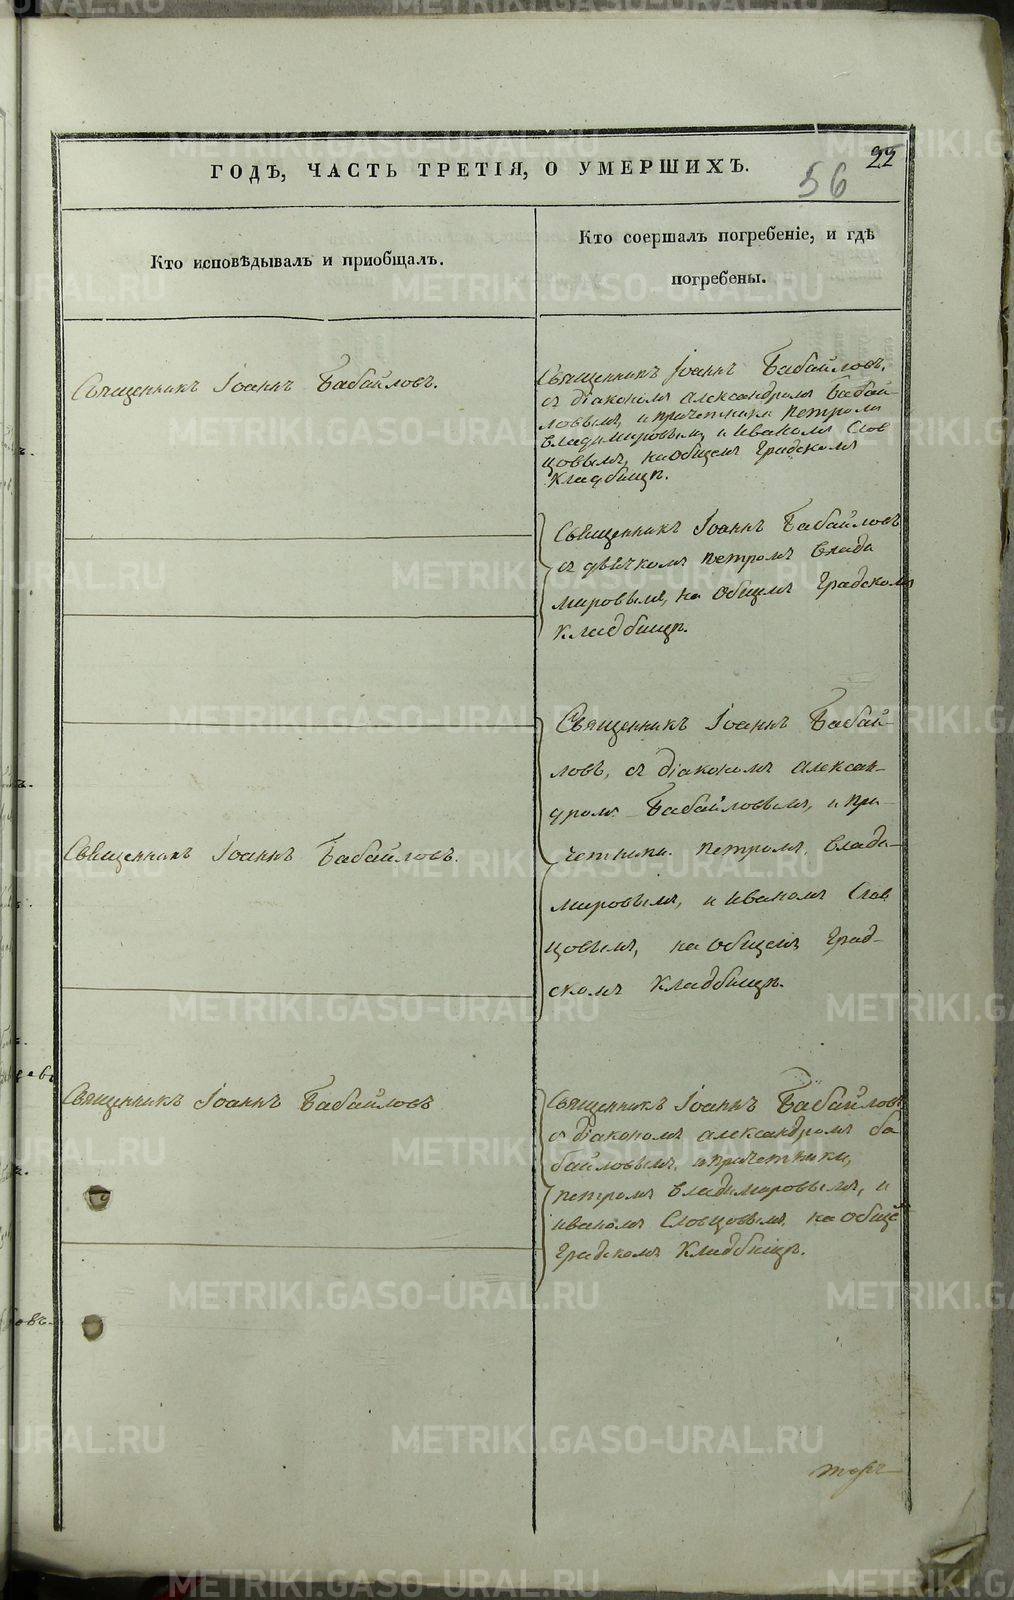 ГОДЪ, ЧАСТЬ ТРЕТІЯ, О УМЕРШИХЪ.
22
56
Кто исповѣдывалъ и приобщалъ.
Кто соершалъ погребеніе, и гдѣ
погребены.
Священникъ Іоаннъ Бабайловъ.
Священникъ Іоаннъ Бабайловъ,
съ діакономъ Александромъ Бабай-
ловымъ, и причетники Петромъ
Владимировымъ, и Иваномъ Слов
цовымъ, на общемъ Градскомъ
Кладбищѣ.
Священникъ Іоаннъ Бабайловъ
съ дьячкомъ Петромъ Влади
мировымъ, на общемъ Градскомъ
Кладбищѣ.
Священникъ Іоаннъ Бабайловъ.
Священникъ Іоаннъ Бабай-
ловъ, съ діакономъ Алексан-
дромъ Бабайловымъ, и при-
четники Петромъ Влади-
мировымъ, и Иваномъ Слов
цовымъ, на общемъ Град-
скомъ Кладбищѣ.
Священникъ Іоаннъ Бабайловъ
Священникъ Іоаннъ Бабайловъ
съ діакономъ Александромъ Ба
байловымъ, и причетники,
Петромъ Владимировымъ, и
Иваномъ Словцовымъ на обще
Градскомъ Кладбищѣ.
METRIKI.GASO-URAL.RU